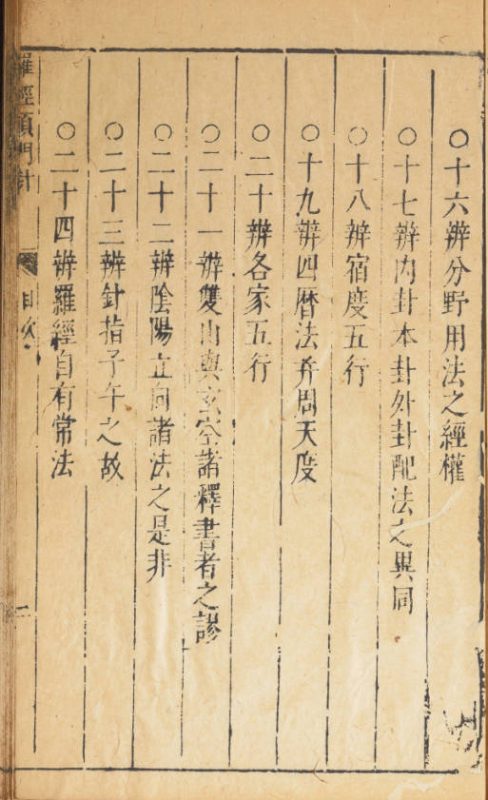 ○十六辨分野用法之經權
○十七辨內卦本卦外卦配法之異同
○十八辨宿度五行
○十九辨四曆法并周天度
○二十辨各家五行
○二十一辨雙山與玄空諸釋書者之謬
○二十二辨陰陽立向諸法之是非
○二十三辨針指子午之故
○二十四辨羅經自有常法
羅經頂門針
目次
二